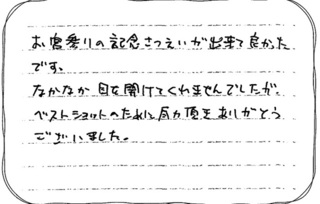 お宮参りの記念さつえいが出来て良かった
です。
なかなか目を開けてくれませんでしたが、
ベストショットのために ご尽力頂きありがとう
ございました。